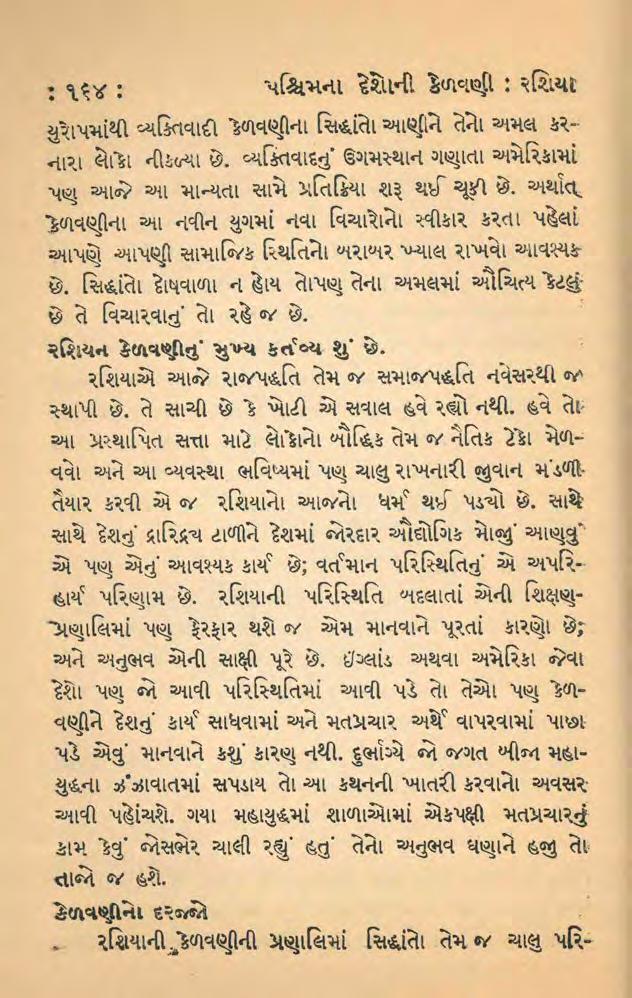 : ૧૬૪ : પશ્ચિમના દેશોની કેળવણી : રશિયા
યુરોપમાંથી વ્યક્તિવાદી કેળવણીના સિદ્ધાંતો આણીને તેનો અમલ કર-
નારા લોકો નીકળ્યા છે. વ્યક્તિવાદનું ઉગમસ્થાન ગણાતા અમેરિકામાં
પણ આજે આ માન્યતા સામે પ્રતિક્રિયા શરૂ થઈ ચૂકી છે. અર્થાત્
કેળવણીના આ નવીન યુગમાં નવા વિચારોનો સ્વીકાર કરતા પહેલાં
આપણે આપણી સામાજિક સ્થિતિનો બરાબર ખ્યાલ રાખવો આવશ્યક
છે. સિદ્ધાંતો દોષવાળા ન હોય તોપણ તેના અમલમાં ઔચિત્ય કેટલું
છે તે વિચારવાનું તો રહે જ છે.
રશિયન કેળવણીનું મુખ્ય કર્તવ્ય શું છે.
રશિયાએ આજે રાજપદ્ધતિ તેમ જ સમાજપદ્ધતિ નવેસરથી જ
સ્થાપી છે. તે સાચી છે કે ખોટી એ સવાલ હવે રહ્યો નથી. હવે તો
આ પ્રસ્થાપિત સત્તા માટે લોકોનો બૌદ્ધિક તેમ જ નૈતિક ટેકો મેળ-
વવો અને આ વ્યવસ્થા ભવિષ્યમાં પણ ચાલુ રાખનારી જુવાન મંડળી
તૈયાર કરવી એ જ રશિયાનો આજનો ધર્મ થઈ પડ્યો છે. સાથે
સાથે દેશનું દ્રારિદ્રય ટાળીને દેશમાં જોરદાર ઔદ્યોગિક મોજું આણવું
એ પણ એનું આવશ્યક કાર્ય છે; વર્તમાન પરિસ્થિતિનું એ અપરિ-
હાર્ય પરિણામ છે. રશિયાની પરિસ્થિતિ બદલાતાં એની શિક્ષણ-
પ્રણાલિમાં પણ ફેરફાર થશે જ એમ માનવાને પૂરતાં કારણો છે;
અને અનુભવ એની સાક્ષી પૂરે છે. ઇંગ્લાંડ અથવા અમેરિકા જેવા
દેશો પણ જો આવી પરિસ્થિતિમાં આવી પડે તો તેઓ પણ કેળ-
વણીને દેશનું કાર્ય સાધવામાં અને મતપ્રચાર અર્થે વાપરવામાં પાછા
પડે એવું માનવાને કશું કારણ નથી. દુર્ભાગ્યે જો જગત બીજા મહા-
યુદ્ધના ઝંઝાવાતમાં સપડાય તો આ કથનની ખાતરી કરવાનો અવસર
આવી પહોંચશે. ગયા મહાયુદ્ધમાં શાળાઓમાં એકપક્ષી મતપ્રચારનું
કામ કેવું જોસભેર ચાલી રહ્યું હતું તેનો અનુભવ ઘણાને હજુ તો
તાજો જ હશે.
કેળવણીનો દરજ્જો
રશિયાની કેળવણીની પ્રણાલિમાં સિદ્ધાંતો તેમ જ ચાલુ પરિ-